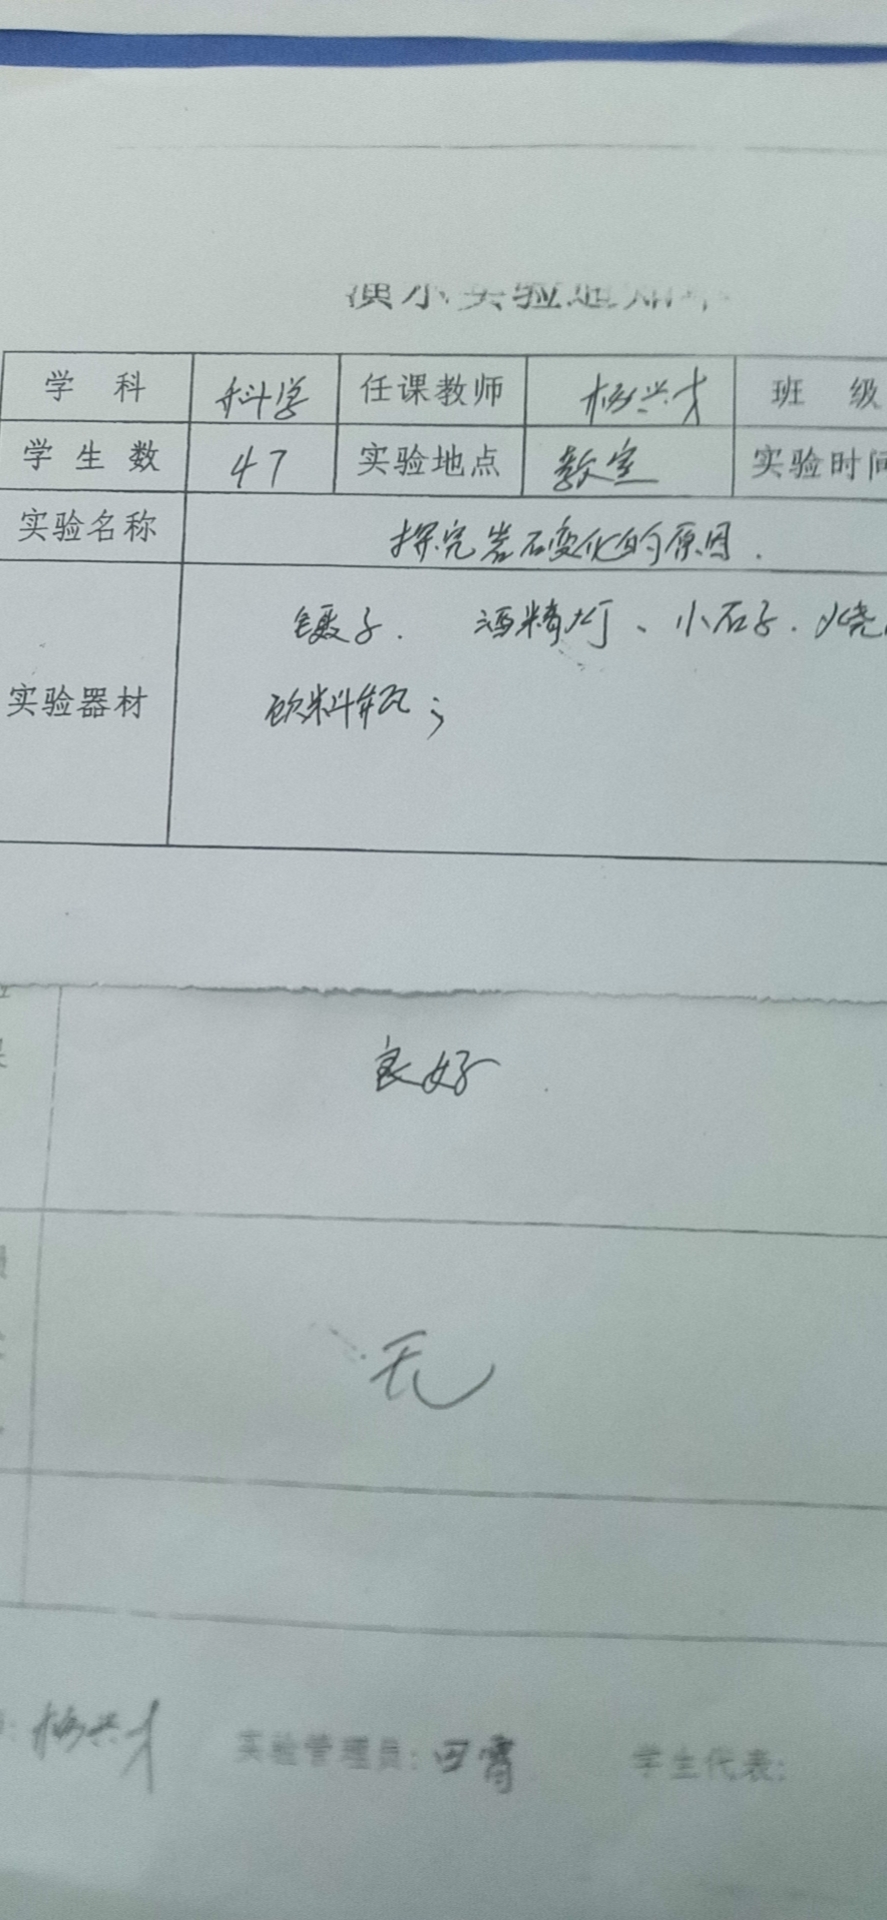 演示实验通知单
学 科 科学 任课教师 杨兴才 班 级
学 生 数 47 实验地点 教室 实验时间
实验名称 探究岩石变化的原因.
镊子. 酒精灯、小石子. 烧
实验器材
饮料瓶;
良好
无
: 杨兴才 实验管理员: 田霄 学生代表: